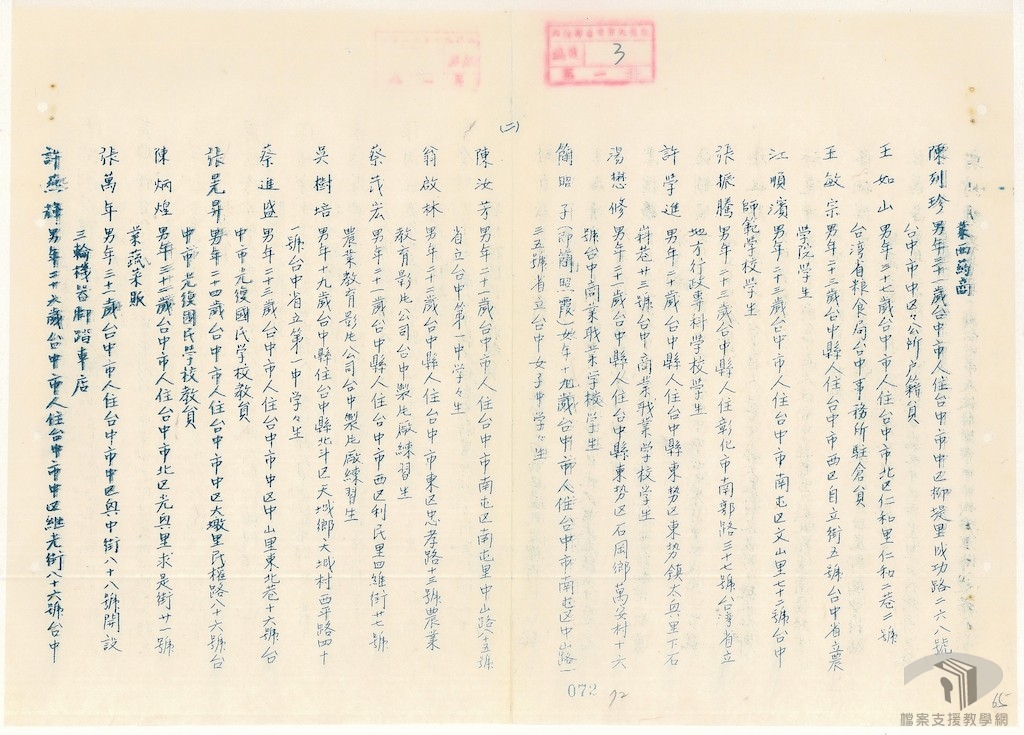 3
業西葯商
陳列珍 男年三十一歲台中市人住台中市中區柳堤里成功路二六八號
台中市中区々公所户籍員
王如山 男年三十七歲台中市人住台中市北区仁和里仁和二巷二號
台湾省粮食局台中事務所駐倉員
王敏宗 男年二十三歲台中縣人住台中市西区自立街五號台中省立農
学院学生
江順濱 男年二十三歲台中市人住台中市南屯区文山里七十二號台中
師範学校学生
張振騰 男年二十三歲台中縣人住彰化市南郭路三十七號台湾省立
地方行政專科学校学生
許学進 男年二十歲台中縣人住台中縣東势区東势鎮太興里下石
巷廿三號台中商業職業学校学生
湯懋修 男年二十一歲台中縣人住台中縣東势区石岡鄉萬安村十六
號台中商業职業学校学生
簡昭子(即簡照霞)女年十九歲台中市人住台中市南屯区中山路一
三五號省立台中女子中学々生
(二)
陳汝芳 男年二十二歲台中市人住台中市南屯区南屯里中山路八十五號
省立台中第一中学々生
翁啟林 男年二十二歲台中縣人住台中市東区忠孝路十三號農業
教育影片公司台中製片廠練習生
蔡茂宏 男年二十一歲台中縣人住台中市西区利民里四維街廿七號
農業教育影片公司台中製片廠練習生
吳樹培 男年十九歲台中縣住台中縣北斗区大城鄉大城村西平路四十
一號台中省立第一中学々生
蔡進盛 男年二十三歲台中市人住台中市中区中山里東北巷十六號台
中市光復國民学校教員
張晃昇 男年二十四歲台中市人住台中市中区大墩里民權路八十六號台
中市光復國民学校教員
陳炳煌 男年三十二歲台中市人住台中市北区光興里求是街廿一號
業蔬菜販
張萬年 男年三十一歲台中市人住台中市中区興中街八十八號開設
三輪機器脚踏車店
許燕輝 男年二十六歲台中市人住台中市中区繼光街八十六號台中
072
72
65
檔案支援教學網